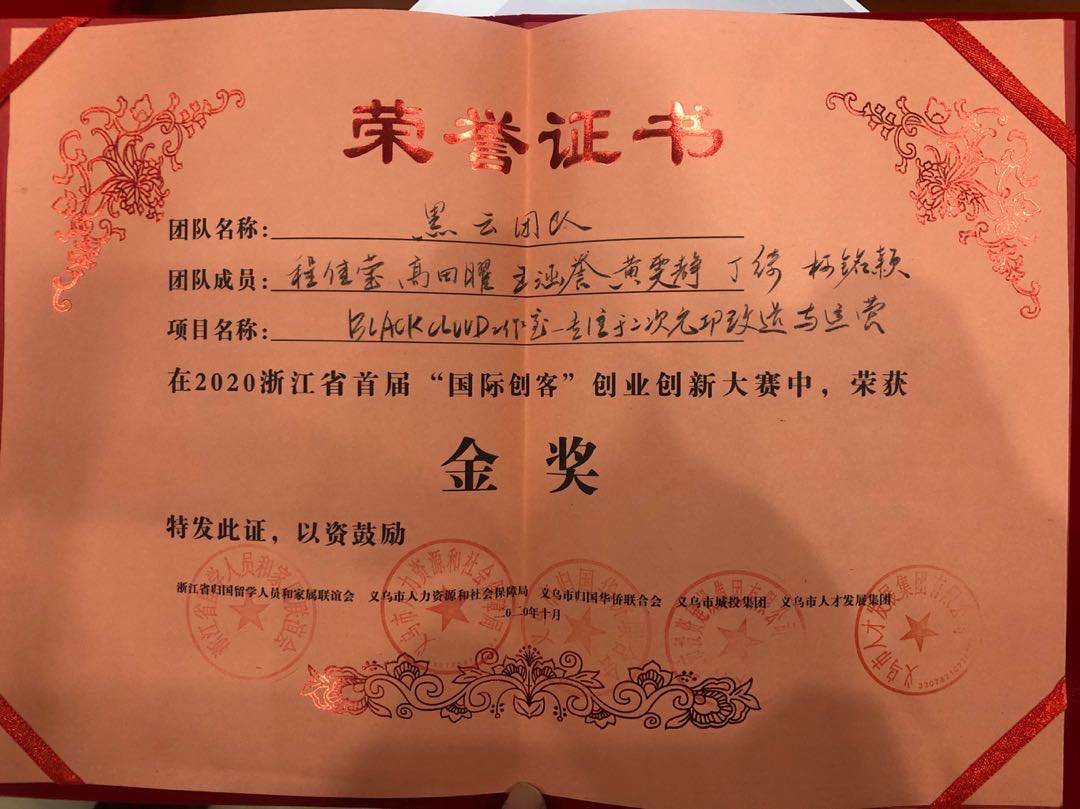 荣誉证书
团队名称：黑云团队
团队成员：程佳莹 高田曜 王涵誉 黄雯静 丁绮 柯铭颖
项目名称：BLACKCLUUD工作室—专注于二次元印改造与运营
在2020浙江省首届“国际创客”创业创新大赛中，荣获
金奖
特发此证，以资鼓励
浙江省归国留学人员和家属联谊会 义乌市人力资源和社会保障局 义乌市归国华侨联合会 义乌市城投集团 义乌市人才发展集团
二〇二〇年十月